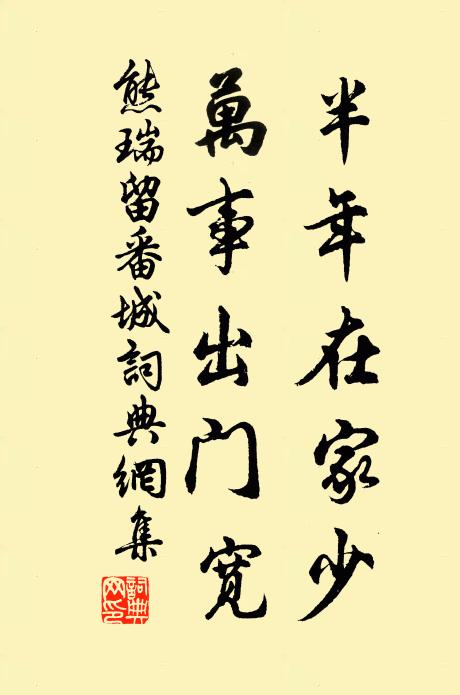 半年在家少
萬事出門寬
熊瑞留番城詞典網集
詞典網印